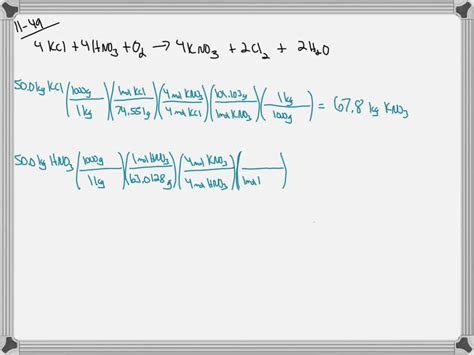 11-49
4 KCl + 4 HNO₃ + O₂ → 4 KNO₃ + 2 Cl₂ + 2 H₂O
50.0 kg KCl (1000g / 1 kg) (1 mol KCl / 74.551 g) (4 mol KNO₃ / 4 mol KCl) (101.102g / 1 mol KNO₃) (1 kg / 1000g) = 67.8 kg KNO₃
50.0 kg HNO₃ (1000g / 1 kg) (1 mol HNO₃ / 63.0128 g) (4 mol KNO₃ / 4 mol HNO₃) ( / 1 mol )